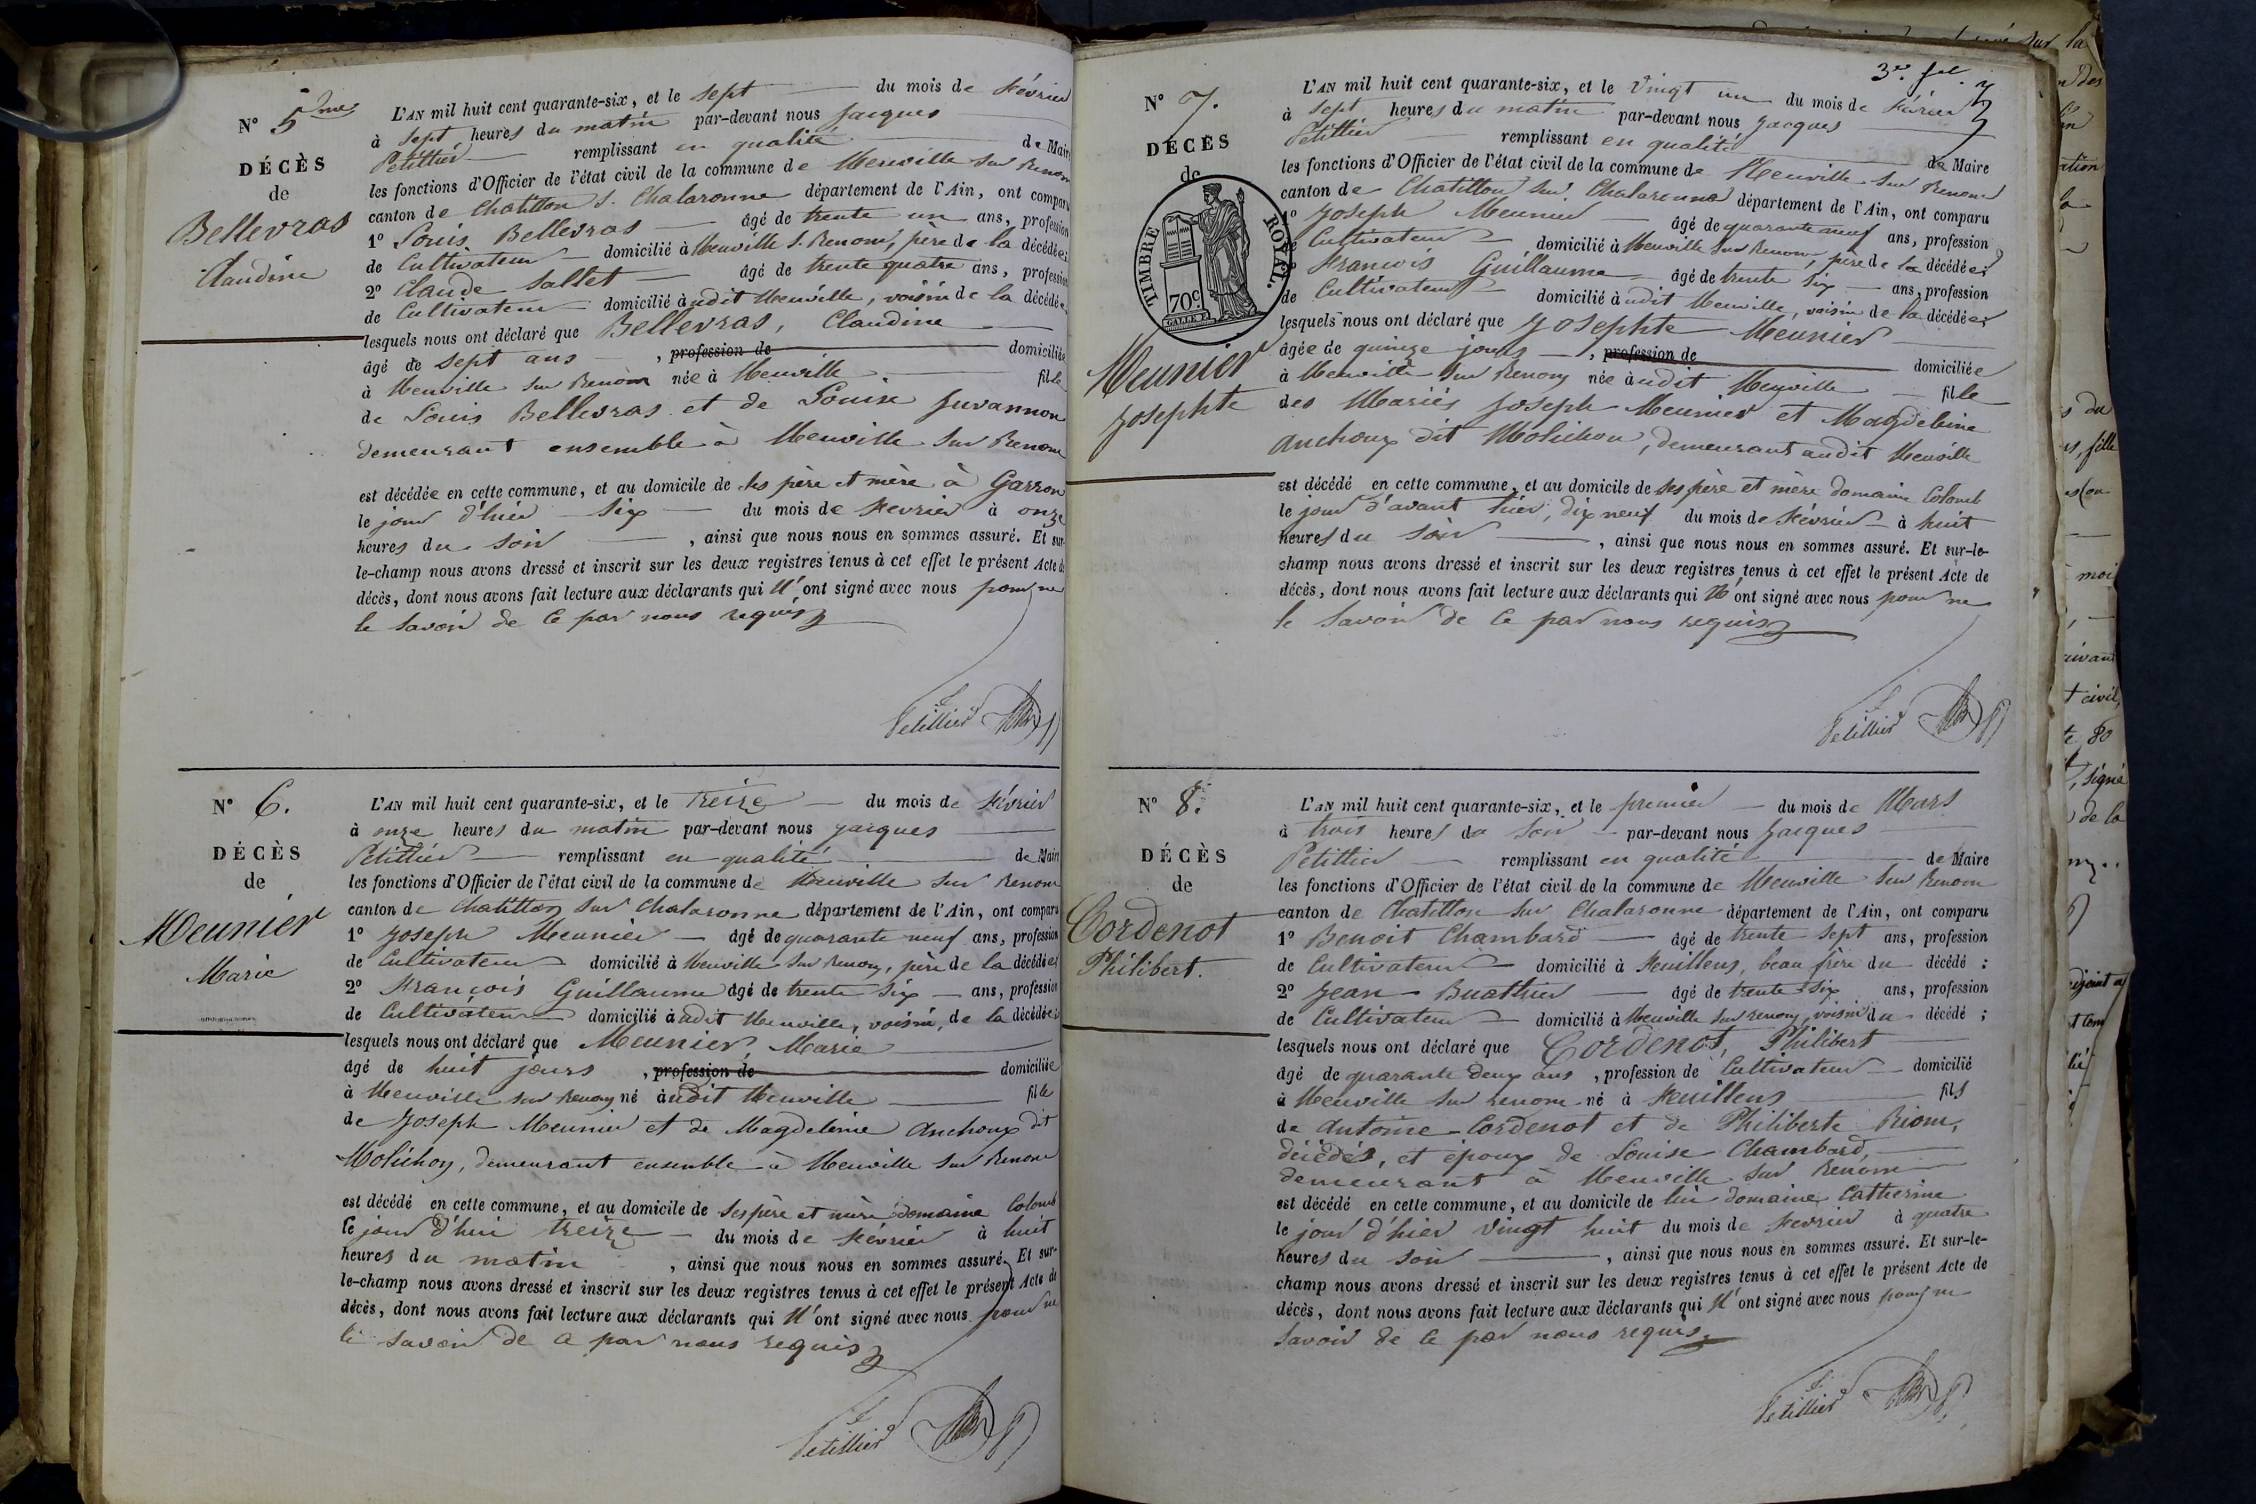 N° 5mes
DÉCÈS
de
Bellevras
Claudine
L'AN mil huit cent quarante-six, et le sept du mois de février
à sept heures du matin par-devant nous Jacques
Petillier remplissant en qualité de Maire
les fonctions d'Officier de l'état civil de la commune de Neuville sur Renom
canton de Chatillon s. Chalaronne département de l'Ain, ont comparu
1° Louis Bellevras âgé de trente un ans, profession
de Cultivateur domicilié à Neuville s. Renom, père de la décédée;
2° Claude Sallet âgé de trente quatre ans, profession
de Cultivateur domicilié àudit Neuville, voisin de la décédée
lesquels nous ont déclaré que Bellevras, Claudine
âgé de sept ans, profession de domiciliée
à Neuville sur Renom née à Neuville fille
de Louis Bellevras et de Louise Juvannon
demeurant ensemble à Neuville sur Renom
est décédée en cette commune, et au domicile de ses père et mère à Garron
le jour d'hier six du mois de février à onze
heures du soir, ainsi que nous nous en sommes assuré. Et sur-
le-champ nous avons dressé et inscrit sur les deux registres tenus à cet effet le présent Acte de
décès, dont nous avons fait lecture aux déclarants qui N'ont signé avec nous pour ne
le savoir de ce par nous requis
Petillier
N° 6.
DÉCÈS
de
Meunier
Marie
L'AN mil huit cent quarante-six, et le treize du mois de février
à onze heures du matin par-devant nous Jacques
Petillier remplissant en qualité de Maire
les fonctions d'Officier de l'état civil de la commune de Neuville sur Renom
canton de Chatillon sur Chalaronne département de l'Ain, ont comparu
1° Joseph Meunier âgé de quarante neuf ans, profession
de Cultivateur domicilié à Neuville sur Renom, père de la décédée;
2° François Guillaume âgé de trente six ans, profession
de Cultivateur domicilié àudit Neuville, voisin, de la décédée;
lesquels nous ont déclaré que Meunier, Marie
âgé de huit jours, profession de domiciliée
à Neuville sur Renom né àudit Neuville fille
de Joseph Meunier et de Magdeleine Anchoux dit
Molichon, demeurant ensemble à Neuville sur Renom
est décédé en cette commune, et au domicile de ses père et mère domaine Colomb
le jour d'hui treize du mois de février à huit
heures du matin, ainsi que nous nous en sommes assuré. Et sur-
le-champ nous avons dressé et inscrit sur les deux registres tenus à cet effet le présent Acte de
décès, dont nous avons fait lecture aux déclarants qui N'ont signé avec nous pour ne
le savoir de ce par nous requis
Petillier
3e. fel.
N° 7.
DÉCÈS
de
TIMBRE ROYAL.
70c
Meunier
Josephte
L'AN mil huit cent quarante-six, et le vingt un du mois de février
à sept heures du matin par-devant nous Jacques
Petillier remplissant en qualité de Maire
les fonctions d'Officier de l'état civil de la commune de Neuville sur Renom
canton de Chatillon sur Chalaronne département de l'Ain, ont comparu
1° Joseph Meunier âgé de quarante neuf ans, profession
de Cultivateur domicilié à Neuville sur Renom, père de la décédée;
François Guillaume âgé de trente six ans, profession
de Cultivateur domicilié àudit Neuville, voisin de la décédée;
lesquels nous ont déclaré que Josephte Meunier
âgée de quinze jours, profession de domiciliée
à Neuville sur Renom née àudit Neuville fille
des Mariés Joseph Meunier et Magdeleine
Anchoux dit Molichon, demeurant audit Neuville
est décédé en cette commune, et au domicile de ses père et mère domaine Colomb
le jour d'avant hier, dix neuf du mois de février à huit
heures du soir, ainsi que nous nous en sommes assuré. Et sur-le-
champ nous avons dressé et inscrit sur les deux registres tenus à cet effet le présent Acte de
décès, dont nous avons fait lecture aux déclarants qui N'ont signé avec nous pour ne
le savoir de ce par nous requis
Petillier
N° 8.
DÉCÈS
de
Cordenot
Philibert.
L'AN mil huit cent quarante-six, et le premier du mois de Mars
à trois heures du soir par-devant nous Jacques
Petillier remplissant en qualité de Maire
les fonctions d'Officier de l'état civil de la commune de Neuville sur Renom
canton de Chatillon sur Chalaronne département de l'Ain, ont comparu
1° Benoit Chambard âgé de trente sept ans, profession
de Cultivateur domicilié à Neuillens, beau frère du décédé;
2° Jean Buathier âgé de trente six ans, profession
de Cultivateur domicilié à Neuville sur renom, voisin du décédé;
lesquels nous ont déclaré que Cordenot, Philibert
âgé de quarante deux ans, profession de Cultivateur domicilié
à Neuville sur renom né à Neuillens fils
de Antoine Cordenot et de Philiberte Riom,
décédés, et époux de Louise Chambard,
demeurant à Neuville sur Renom
est décédé en cette commune, et au domicile de lui domaine Catherine
le jour d'hier vingt huit du mois de février à quatre
heures du soir, ainsi que nous nous en sommes assuré. Et sur-le-
champ nous avons dressé et inscrit sur les deux registres tenus à cet effet le présent Acte de
décès, dont nous avons fait lecture aux déclarants qui N'ont signé avec nous pour ne
savoir de ce par nous requis.
Petillier